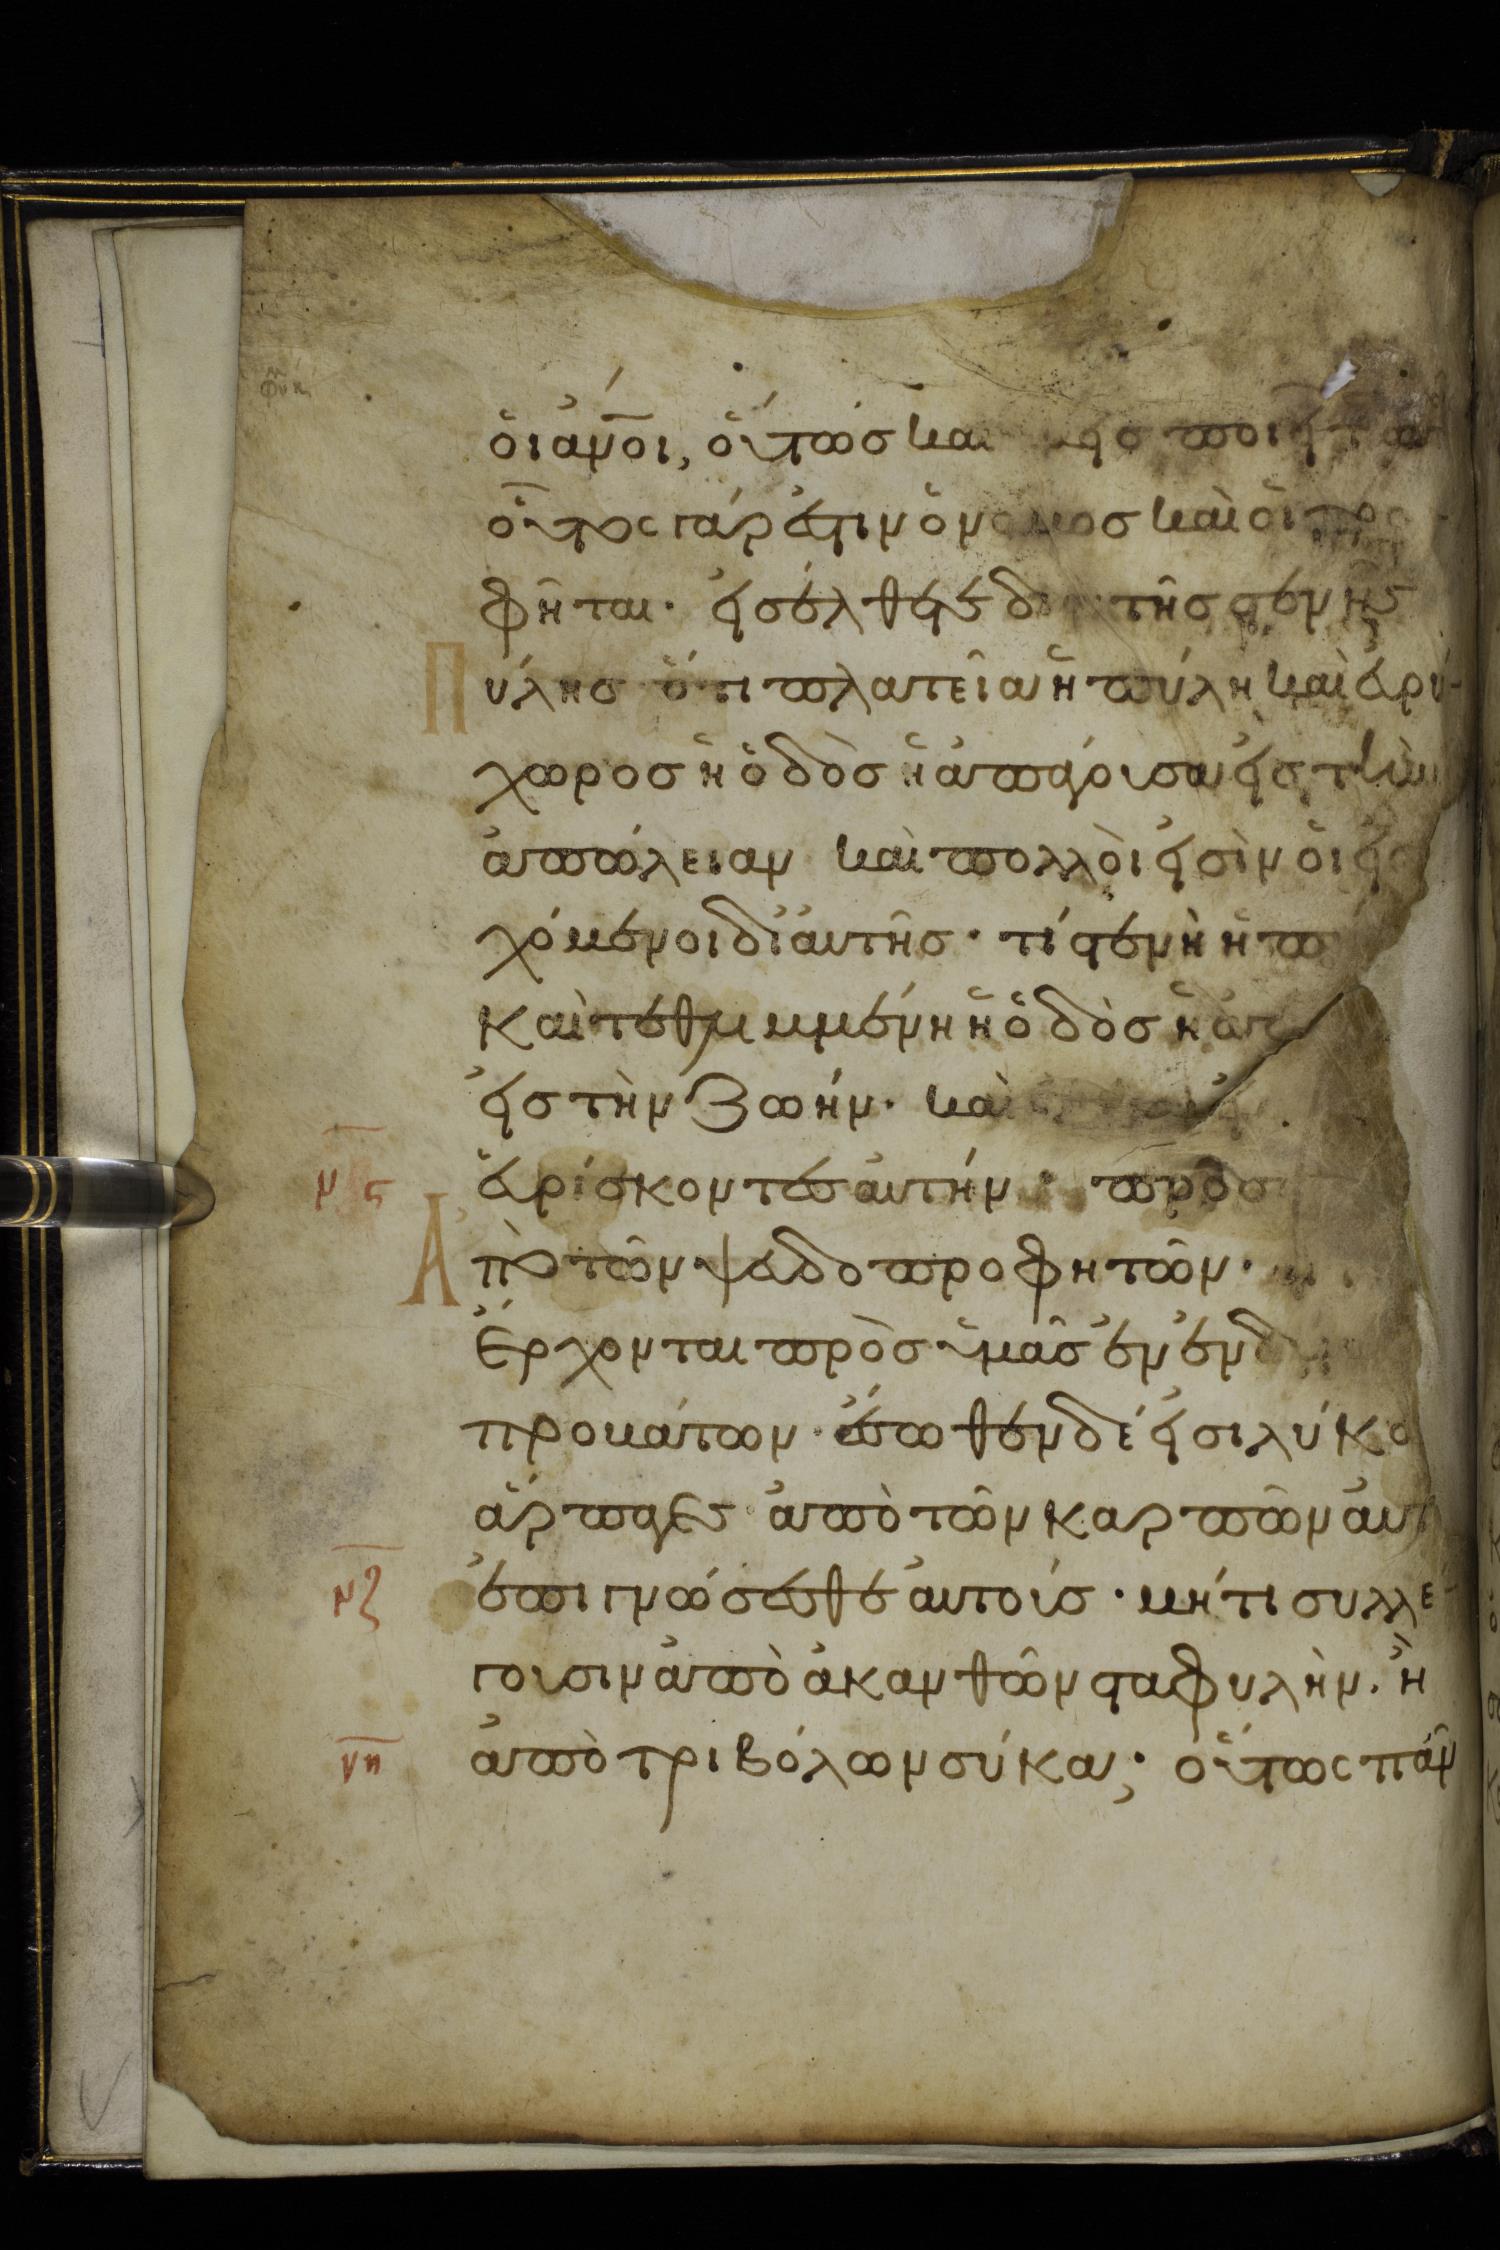 ὁι ἄνοι, ὁύτως και ποιεῖτε
οὗτος γάρ ἐστιν ὁ νόμος καὶ ὁι προ
φῆται· εἰσέλθετε διὰ τῆς στενῆς
Πύλης ὅτι πλατεῖα ἡ πύλη καὶ ἐυρύ
χωρος ἡ ὁδὸς ἡ ἀπάγουσα εἰς τὴν
ἀπώλειαν καὶ πολλοὶ εἰσὶν ὁι εἰσ
χόμενοι δι ἀυτῆς· τί στενὴ ἡ π
Καὶ τεθλιμμένη ἡ ὁδὸς ἡ ἀπ
εἰς τὴν ζωήν· καὶ
μς ἑυρίσκοντες ἀυτήν· προσ
Ἀπὸ τῶν ψευδοπροφητῶν·
Ἔρχονται πρὸς ὑμᾶς ἐν ἐνδ
προβάτων· ἔσωθεν δέ εἰσι λύκο
ἅρπαγες ἀπὸ τῶν καρπῶν ἀυτ
νζ ἐπιγνώσεσθε ἀυτοίς· μήτι συλλέ
γουσιν ἀπὸ ἀκανθῶν σταφυλὴν· ἢ
νη ἀπὸ τριβόλων σύκα; ὁύτως πᾶν